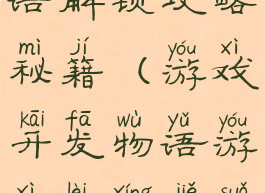 语解锁攻略
mì jí yóu xì
秘籍(游戏
kāi fā wù yǔ yóu
开发物语游
xì lèi xíng jiě suǒ